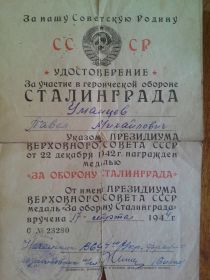 За нашу Советскую Родину
СС СР
УДОСТОВЕРЕНИЕ
За участие в героической обороне
СТАЛИНГРАДА
Уманцов
Павел Михайлович
Указом ПРЕЗИДИУМА
ВЕРХОВНОГО СОВЕТА СССР
от 22 декабря 1942 г. награжден
медалью
«ЗА ОБОРОНУ СТАЛИНГРАДА»
От имени ПРЕЗИДИУМА
ВЕРХОВНОГО СОВЕТА СССР
медаль «За оборону Сталинграда»
вручена 17 194 г.
С № 23280